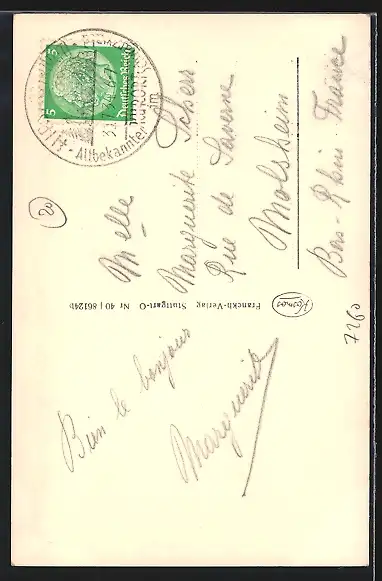 5 Deutsches Reich 5
Altbekannter
im
20
Melle
Marguerite Scherr
Rue de Saverne
Molsheim
Bas-Rhin France
Kosmos
Franckh-Verlag Stuttgart-O Nr 40 j 86124b
7260
Bien le bonjour
Marguerite